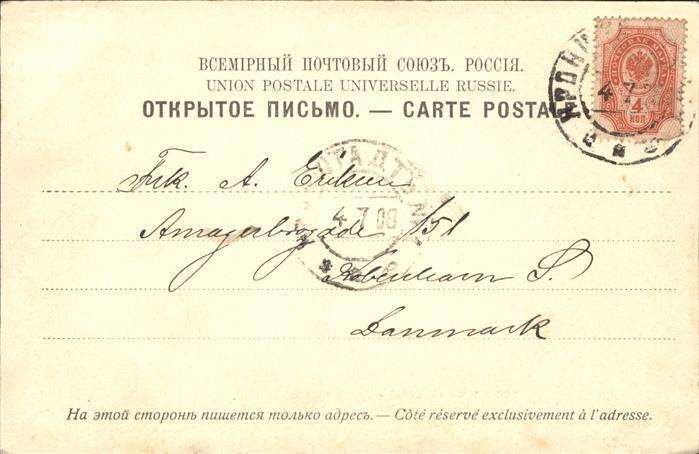 ВСЕМІРНЫЙ ПОЧТОВЫЙ СОЮЗЪ. РОССІЯ.
UNION POSTALE UNIVERSELLE RUSSIE.
ОТКРЫТОЕ ПИСЬМО. — CARTE POSTAL
4
КОП
4 7
Frk. A. Eriksen
4 7 08
Amagerbrogade 151
København S.
Danmark
На этой сторонѣ пишется только адресъ. — Côté réservé exclusivement à l'adresse.